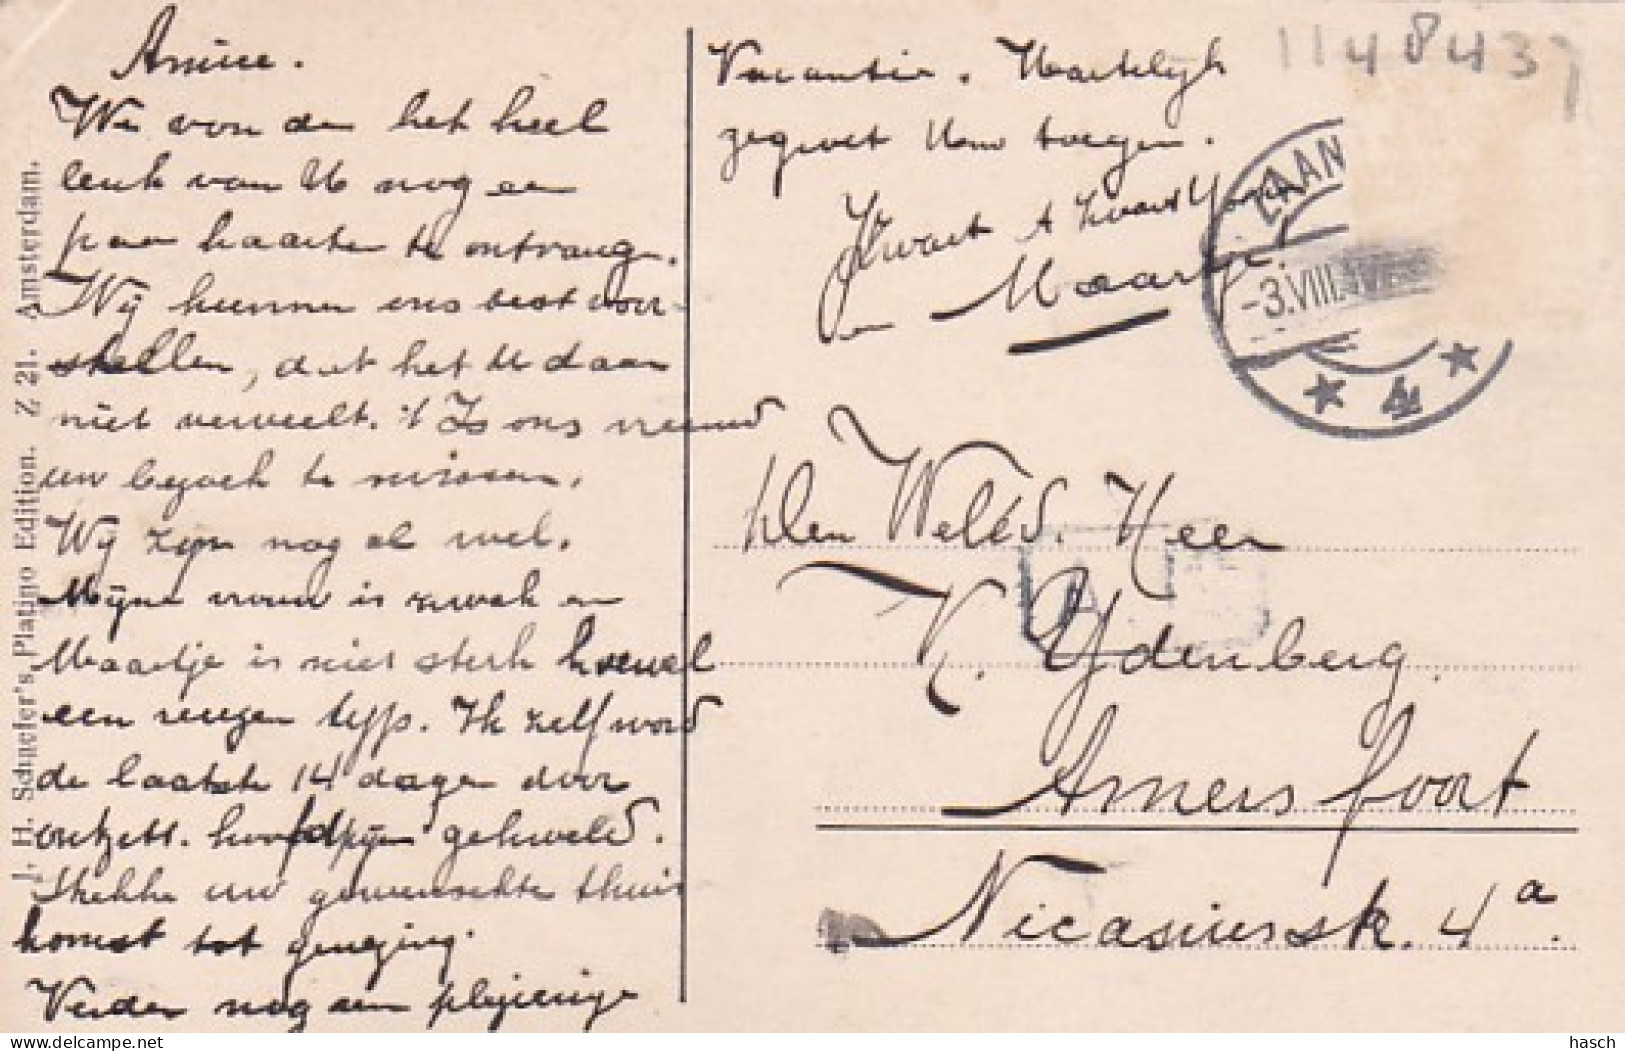 Amice.
We vonden het heel
leuk van U nog een
paar kaarten te ontvang.
Wij kunnen ons best voor-
stellen, dat het U daar
niet verveelt. 't Is ons vreemd
uw bezoek te missen.
Wij zijn nog al wel.
Mijne vrouw is zwak en
Maartje is niet sterk hoewel
een reuzen type. Ik zelf word
de laatste 14 dagen door
ontzett. hoofdpijn gekweld.
Strekke uw gewenschte thuis
komst tot genezing.
Verder nog een plezierige
Vacantie. Hartelijk
gegroet Uw toegen.
Zwart
en Maartje
1148437
ZAAN
-3.VIII.
4
Den WelEd. Heer
K. IJdenberg.
Amersfoort
Nicasiusstr. 4a.
J. H. Schaefer's Platino Edition. Z 21. Amsterdam.
delcampe.net
hasch